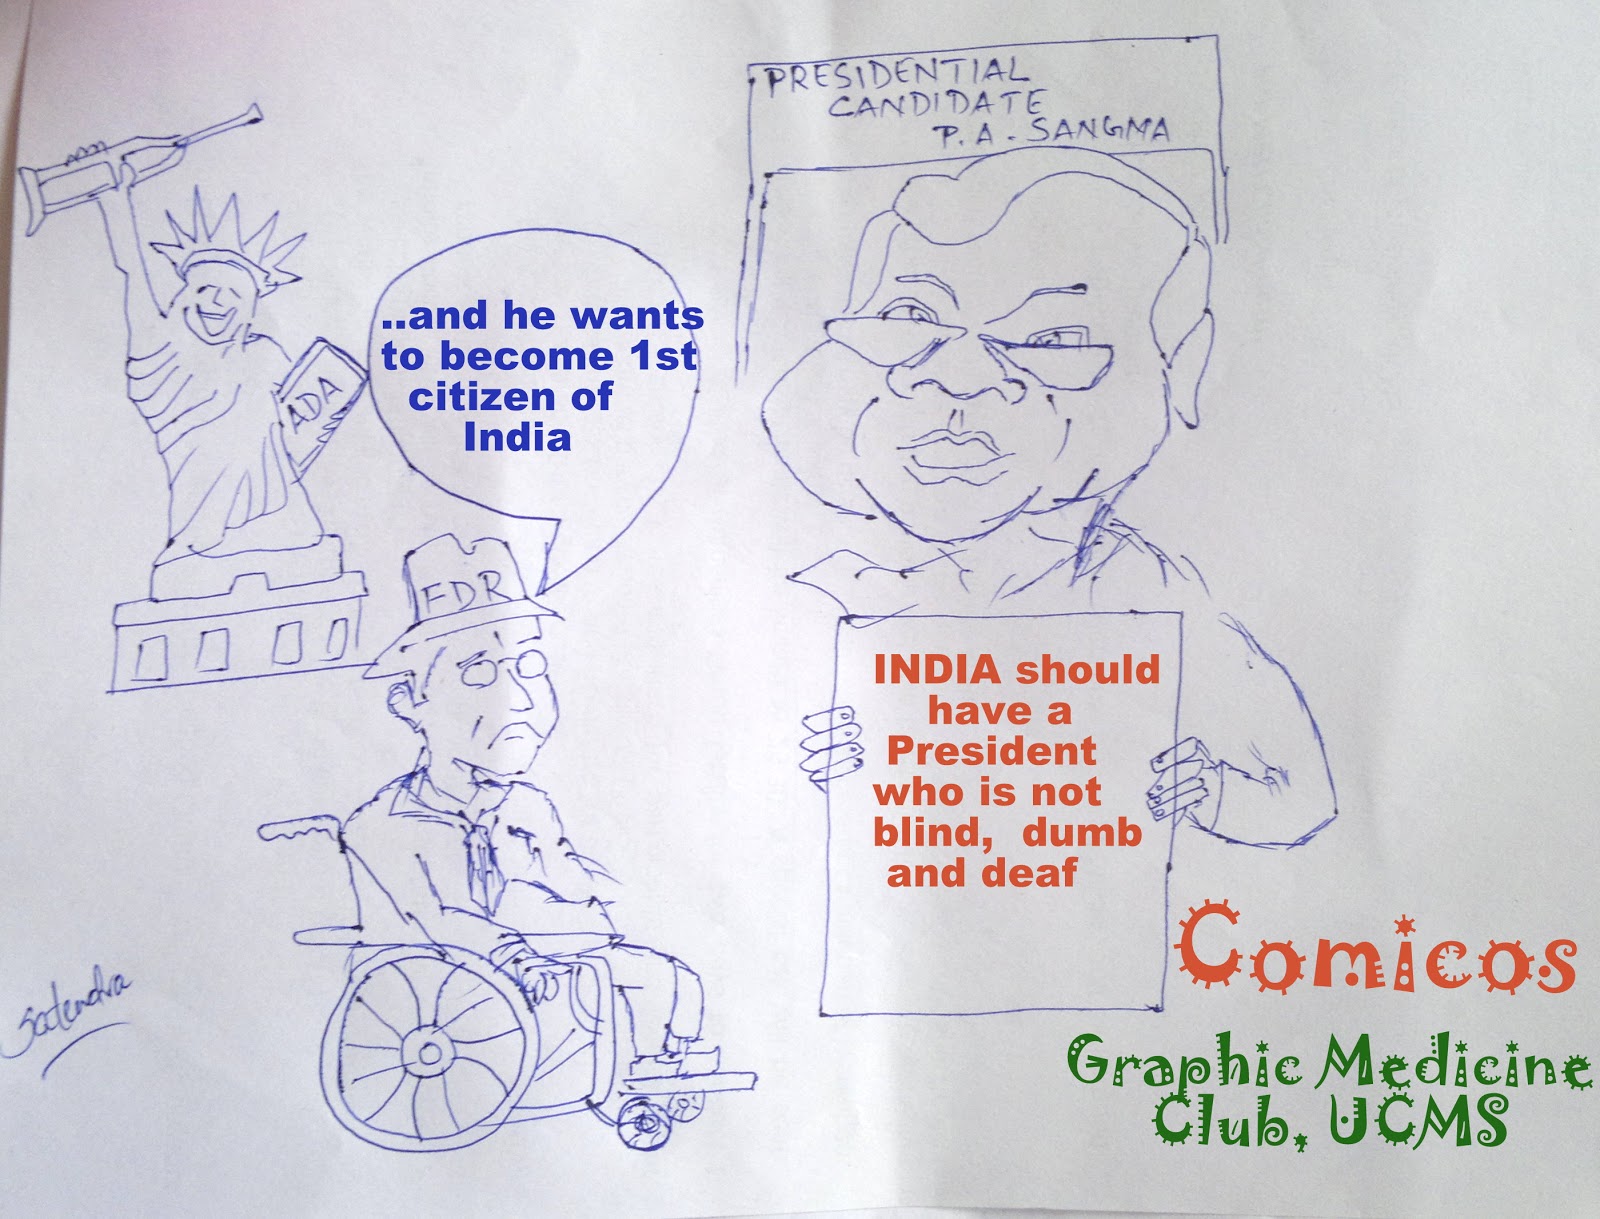 PRESIDENTIAL
CANDIDATE
P. A. SANGMA
ADA
..and he wants
to become 1st
citizen of
India
FDR
INDIA should
have a
President
who is not
blind, dumb
and deaf
Satendra
Comicos
Graphic Medicine
Club, UCMS